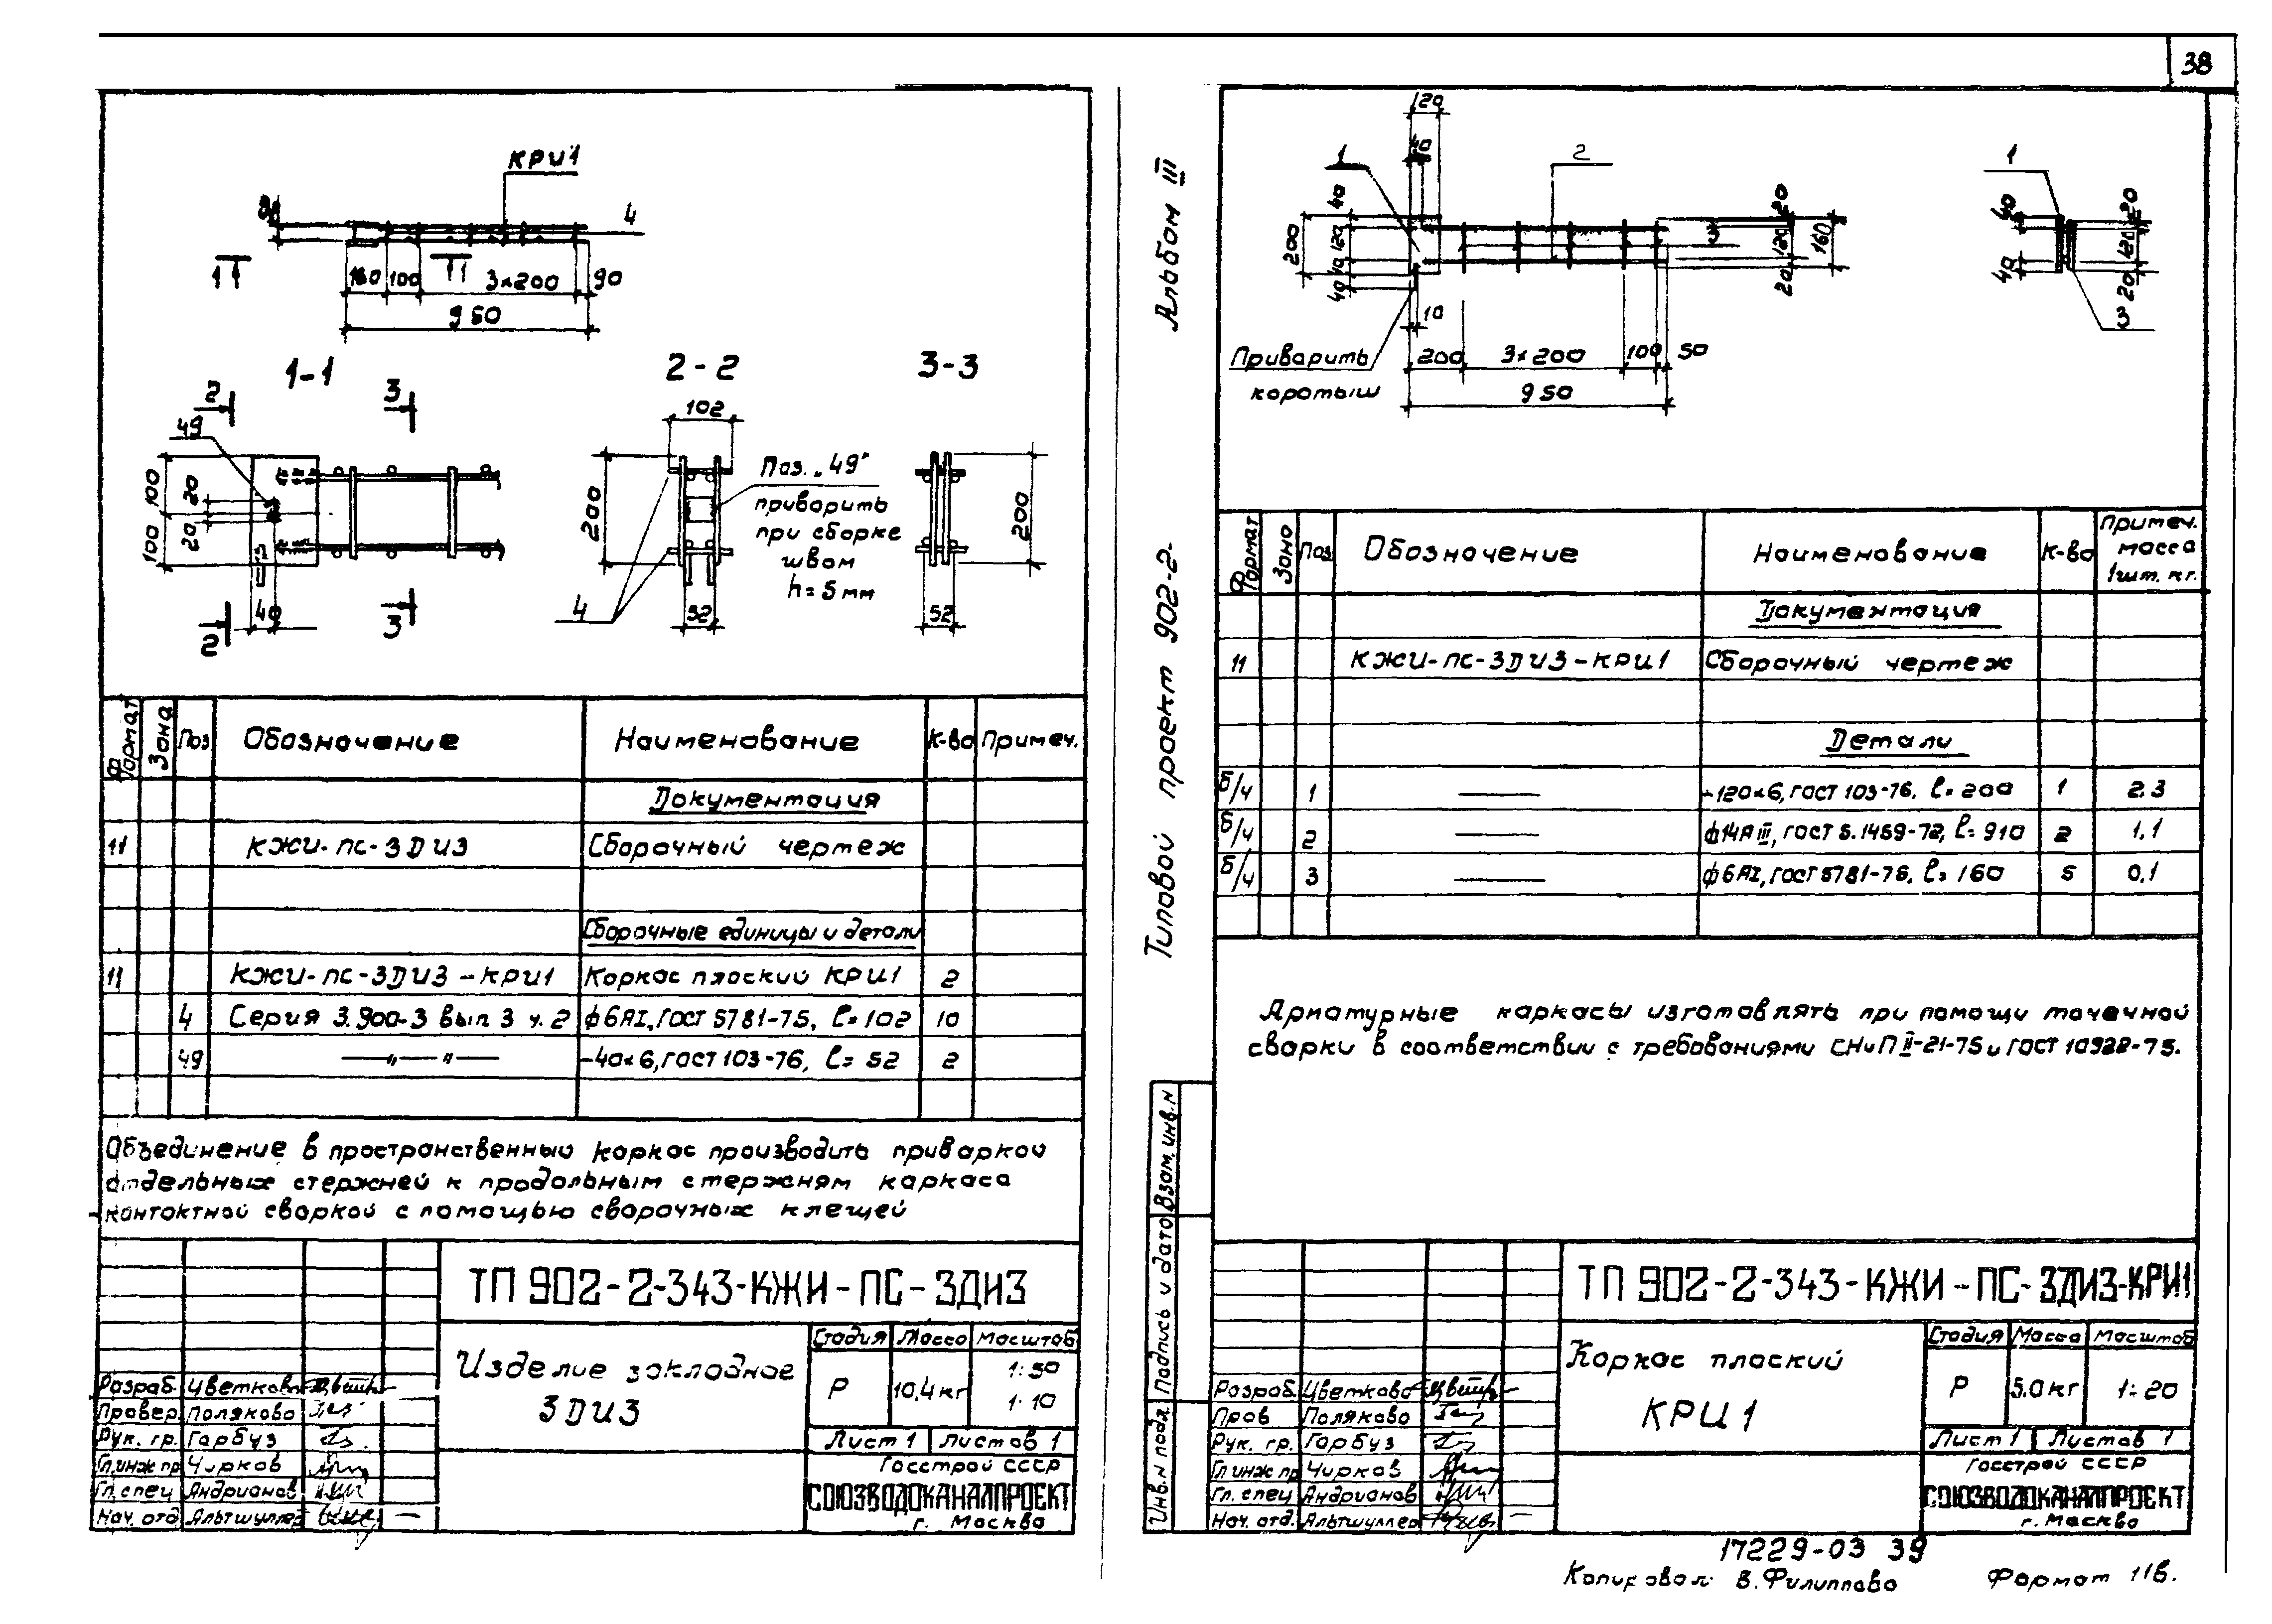 38
КРИ1
4
1 1
160 100 3×200 90
950
1-1
2-2
3-3
2 3
49
100 100
20 20
40
2 3
102
200
4
52
Поз. „49"
приварить
при сборке
швом
h=5мм
200
52
Формат Зона Поз Обозначение Наименование К-во Примеч.
Документация
11 КЖИ-ПС-3ДИ3 Сборочный чертеж
Сборочные единицы и детали
11 КЖИ-ПС-3ДИ3-КРИ1 Каркас плоский КРИ1 2
4 Серия 3.900-3 вып 3 ч.2 ф6АI, ГОСТ 5781-75, ℓ=102 10
49 —〃—〃— -40×6, ГОСТ 103-76, ℓ=52 2
Объединение в пространственный каркас производить приваркой
отдельных стержней к продольным стержням каркаса
контактной сваркой с помощью сварочных клещей
ТП 902-2-343-КЖИ-ПС-3ДИ3
Изделие закладное
3ДИ3
Стадия Масса Масштаб
Р 10,4кг 1:50
1:10
Лист 1 Листов 1
Госстрой СССР
СОЮЗВОДОКАНАЛПРОЕКТ
г. Москва
Разраб. Цветкова
Провер. Полякова
Рук. гр. Гарбуз
Гл.инж.пр Чирков
Гл. спец Андрианов
Нач. отд Альтшуллер
Альбом III
Типовой проект 902-2-
Взам. инв.N
Подпись и дата
Инв.N подл.
120
1
2
40 120 10 40
200
10
Приварить
коротыш
200 3×200 100 50
950
3
20 120 20
160
1
40 40
20 120 20
3
Формат Зона Поз Обозначение Наименование К-во Примеч. масса 1шт. кг.
Документация
11 КЖИ-ПС-3ДИ3-КРИ1 Сборочный чертеж
Детали
б/ч 1 —— -120×6, ГОСТ 103-76, ℓ=200 1 2.3
б/ч 2 —— ф14АIII, ГОСТ 5.1459-72, ℓ=910 2 1,1
б/ч 3 —— ф6АI, ГОСТ 5781-75, ℓ=160 5 0,1
Арматурные каркасы изготовлять при помощи точечной
сварки в соответствии с требованиями СНиП II-21-75 и ГОСТ 10922-75.
ТП 902-2-343-КЖИ-ПС-3ДИ3-КРИ1
Каркас плоский
КРИ1
Стадия Масса Масштаб
Р 5.0кг 1:20
Лист 1 Листов 1
Госстрой СССР
СОЮЗВОДОКАНАЛПРОЕКТ
г. Москва
Разраб. Цветкова
Пров Полякова
Рук. гр. Гарбуз
Гл инж пр Чирков
Гл. спец Андрианов
Нач. отд. Альтшуллер
17229-03 39
Копировал: В. Филиппова Формат 11в.